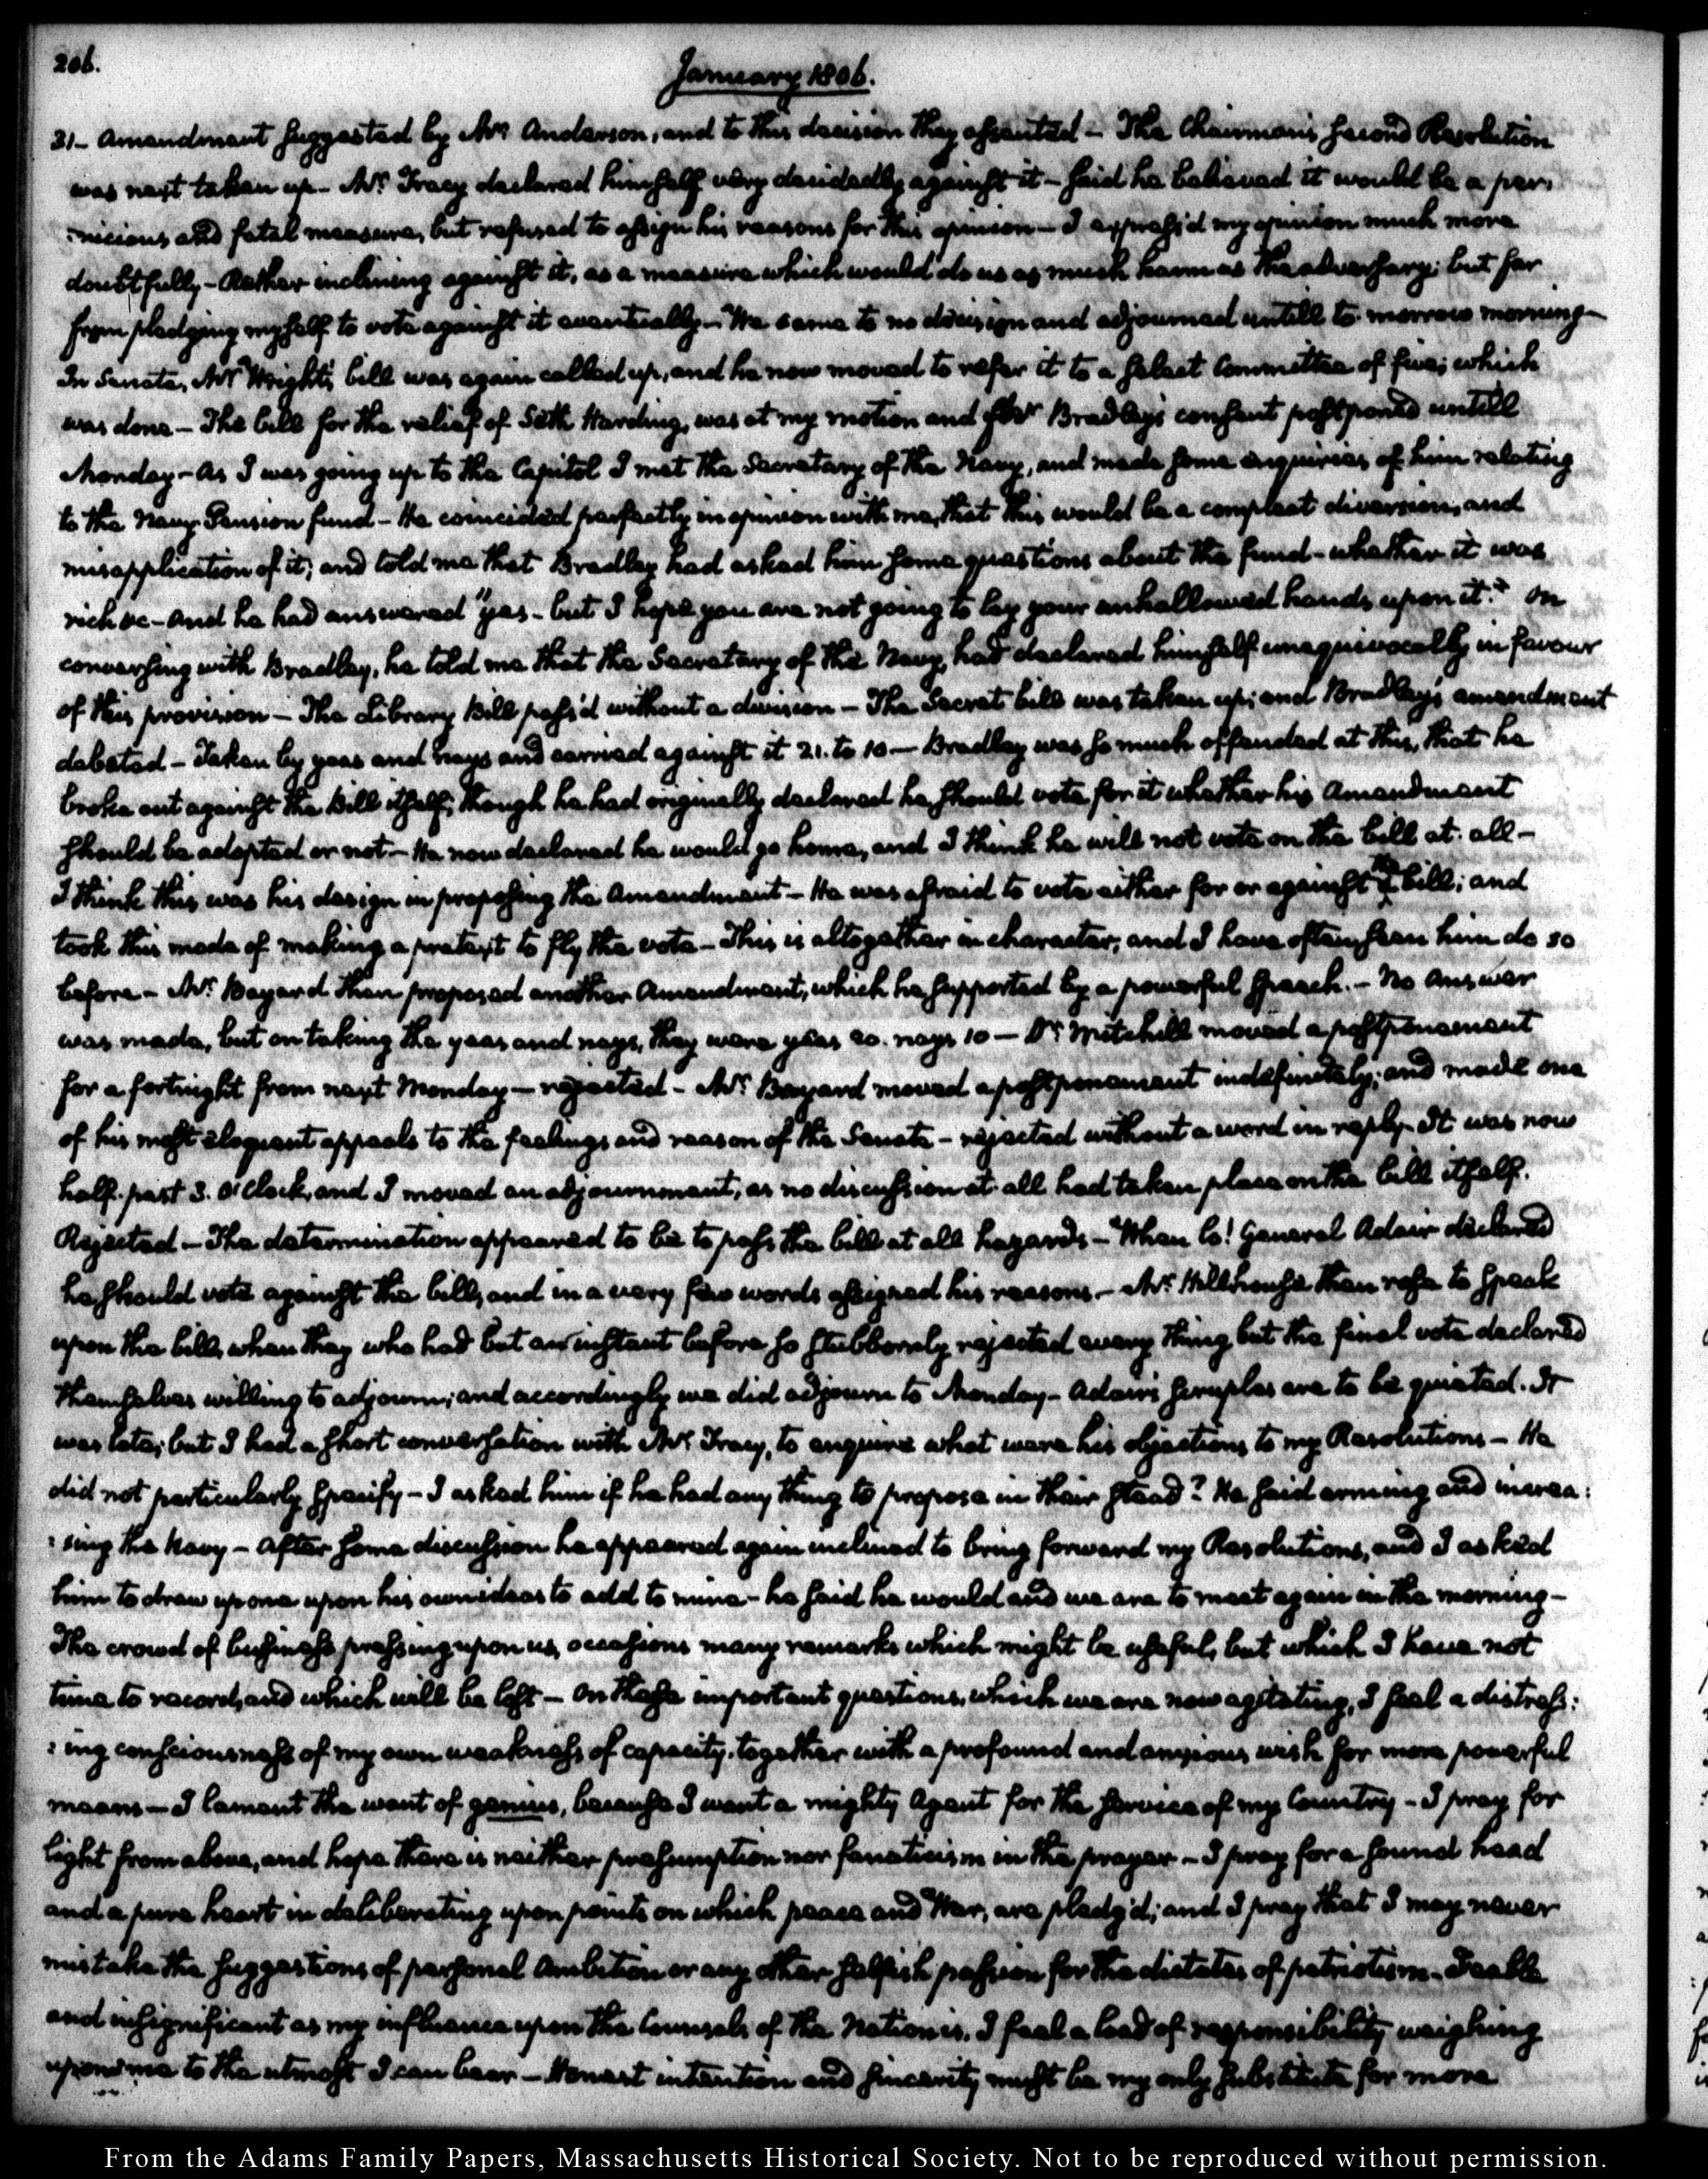 206.
January 1806.
31- Amendment suggested by Mr. Anderson, and to this decision they assented - The Chairman's second Resolution
was next taken up - Mr. Tracy declared himself very decidedly against it - said he believed it would be a per:
:nicious and fatal measure, but refused to assign his reasons for this opinion - I express'd my opinion much more
doubtfully - Rather inclining against it, as a measure which would do us as much harm as the adversary; but far
from pledging myself to vote against it eventually - We came to no decision and adjourned untill to-morrow morning -
In Senate, Mr Wright's bill was again called up, and he now moved to refer it to a select Committee of five; which
was done - The bill for the relief of Seth Harding, was at my motion and Mr Bradley's consent postponed untill
Monday - As I was going up to the Capitol I met the Secretary of the Navy, and made some enquiries of him relating
to the Navy Pension fund - He coincided perfectly in opinion with me, that this would be a compleat diversion, and
misapplication of it; and told me that Bradley had asked him some questions about the fund - whether it was
rich &c - And he had answered "yes - but I hope you are not going to lay your unhallowed hands upon it." On
conversing with Bradley, he told me that the Secretary of the Navy, had declared himself unequivocally in favour
of this provision - The Library Bill pass'd without a division - The Secret bill was taken up; and Bradley's amendment
debated - Taken by yeas and nays and carried against it 21. to 10 - Bradley was so much offended at this, that he
broke out against the Bill itself; though he had originally declared he should vote for it whether his Amendment
should be adopted or not - He now declared he would go home, and I think he will not vote on the bill at all -
I think this was his design in proposing the Amendment - He was afraid to vote either for or against the bill; and
took this mode of making a pretext to fly the vote - This is altogether in character, and I have often seen him do so
before - Mr. Bayard then proposed another Amendment, which he supported by a powerful speech. - No answer
was made, but on taking the yeas and nays, they were yeas 20. nays 10 - Dr. Mitchill moved a postponement
for a fortnight from next Monday - rejected - Mr. Bayard moved a postponement indefinitely; and made one
of his most eloquent appeals to the feelings and reason of the Senate - rejected without a word in reply - It was now
half-past 3. o'clock, and I moved an adjournment, as no discussion at all had taken place on the bill itself.
Rejected - The determination appeared to be to pass the bill at all hazards - When lo! General Adair declared
he should vote against the bill, and in a very few words assigned his reasons. - Mr. Hillhouse then rose to speak
upon the bill, when they who had but an instant before so stubbornly rejected every thing but the final vote declared
themselves willing to adjourn; and accordingly we did adjourn to Monday - Adair's scruples are to be quieted. It
was late; but I had a short conversation with Mr. Tracy, to enquire what were his objections to my Resolutions - He
did not particularly specify - I asked him if he had any thing to propose in their stead? He said arming and increa:
:sing the Navy - After some discussion he appeared again inclined to bring forward my Resolutions, and I asked
him to draw up one upon his own ideas to add to mine - he said he would and we are to meet again in the morning -
The crowd of business pressing upon us, occasions many remarks which might be useful, but which I have not
time to record, and which will be lost - On these important questions, which we are now agitating, I feel a distress:
:ing consciousness of my own weakness of capacity, together with a profound and anxious wish for more powerful
means - I lament the want of genius, because I want a mighty Agent for the service of my Country - I pray for
light from above, and hope there is neither presumption nor fanaticism in the prayer - I pray for a sound head
and a pure heart in deliberating upon points on which peace and War, are pledg'd; and I pray that I may never
mistake the suggestions of personal Ambition or any other selfish passion for the dictates of patriotism. Feeble
and insignificant as my influence upon the Counsels of the Nation is, I feel a load of responsibility weighing
upon me to the utmost I can bear - Honest intention and sincerity must be my only substitute for more
From the Adams Family Papers, Massachusetts Historical Society. Not to be reproduced without permission.